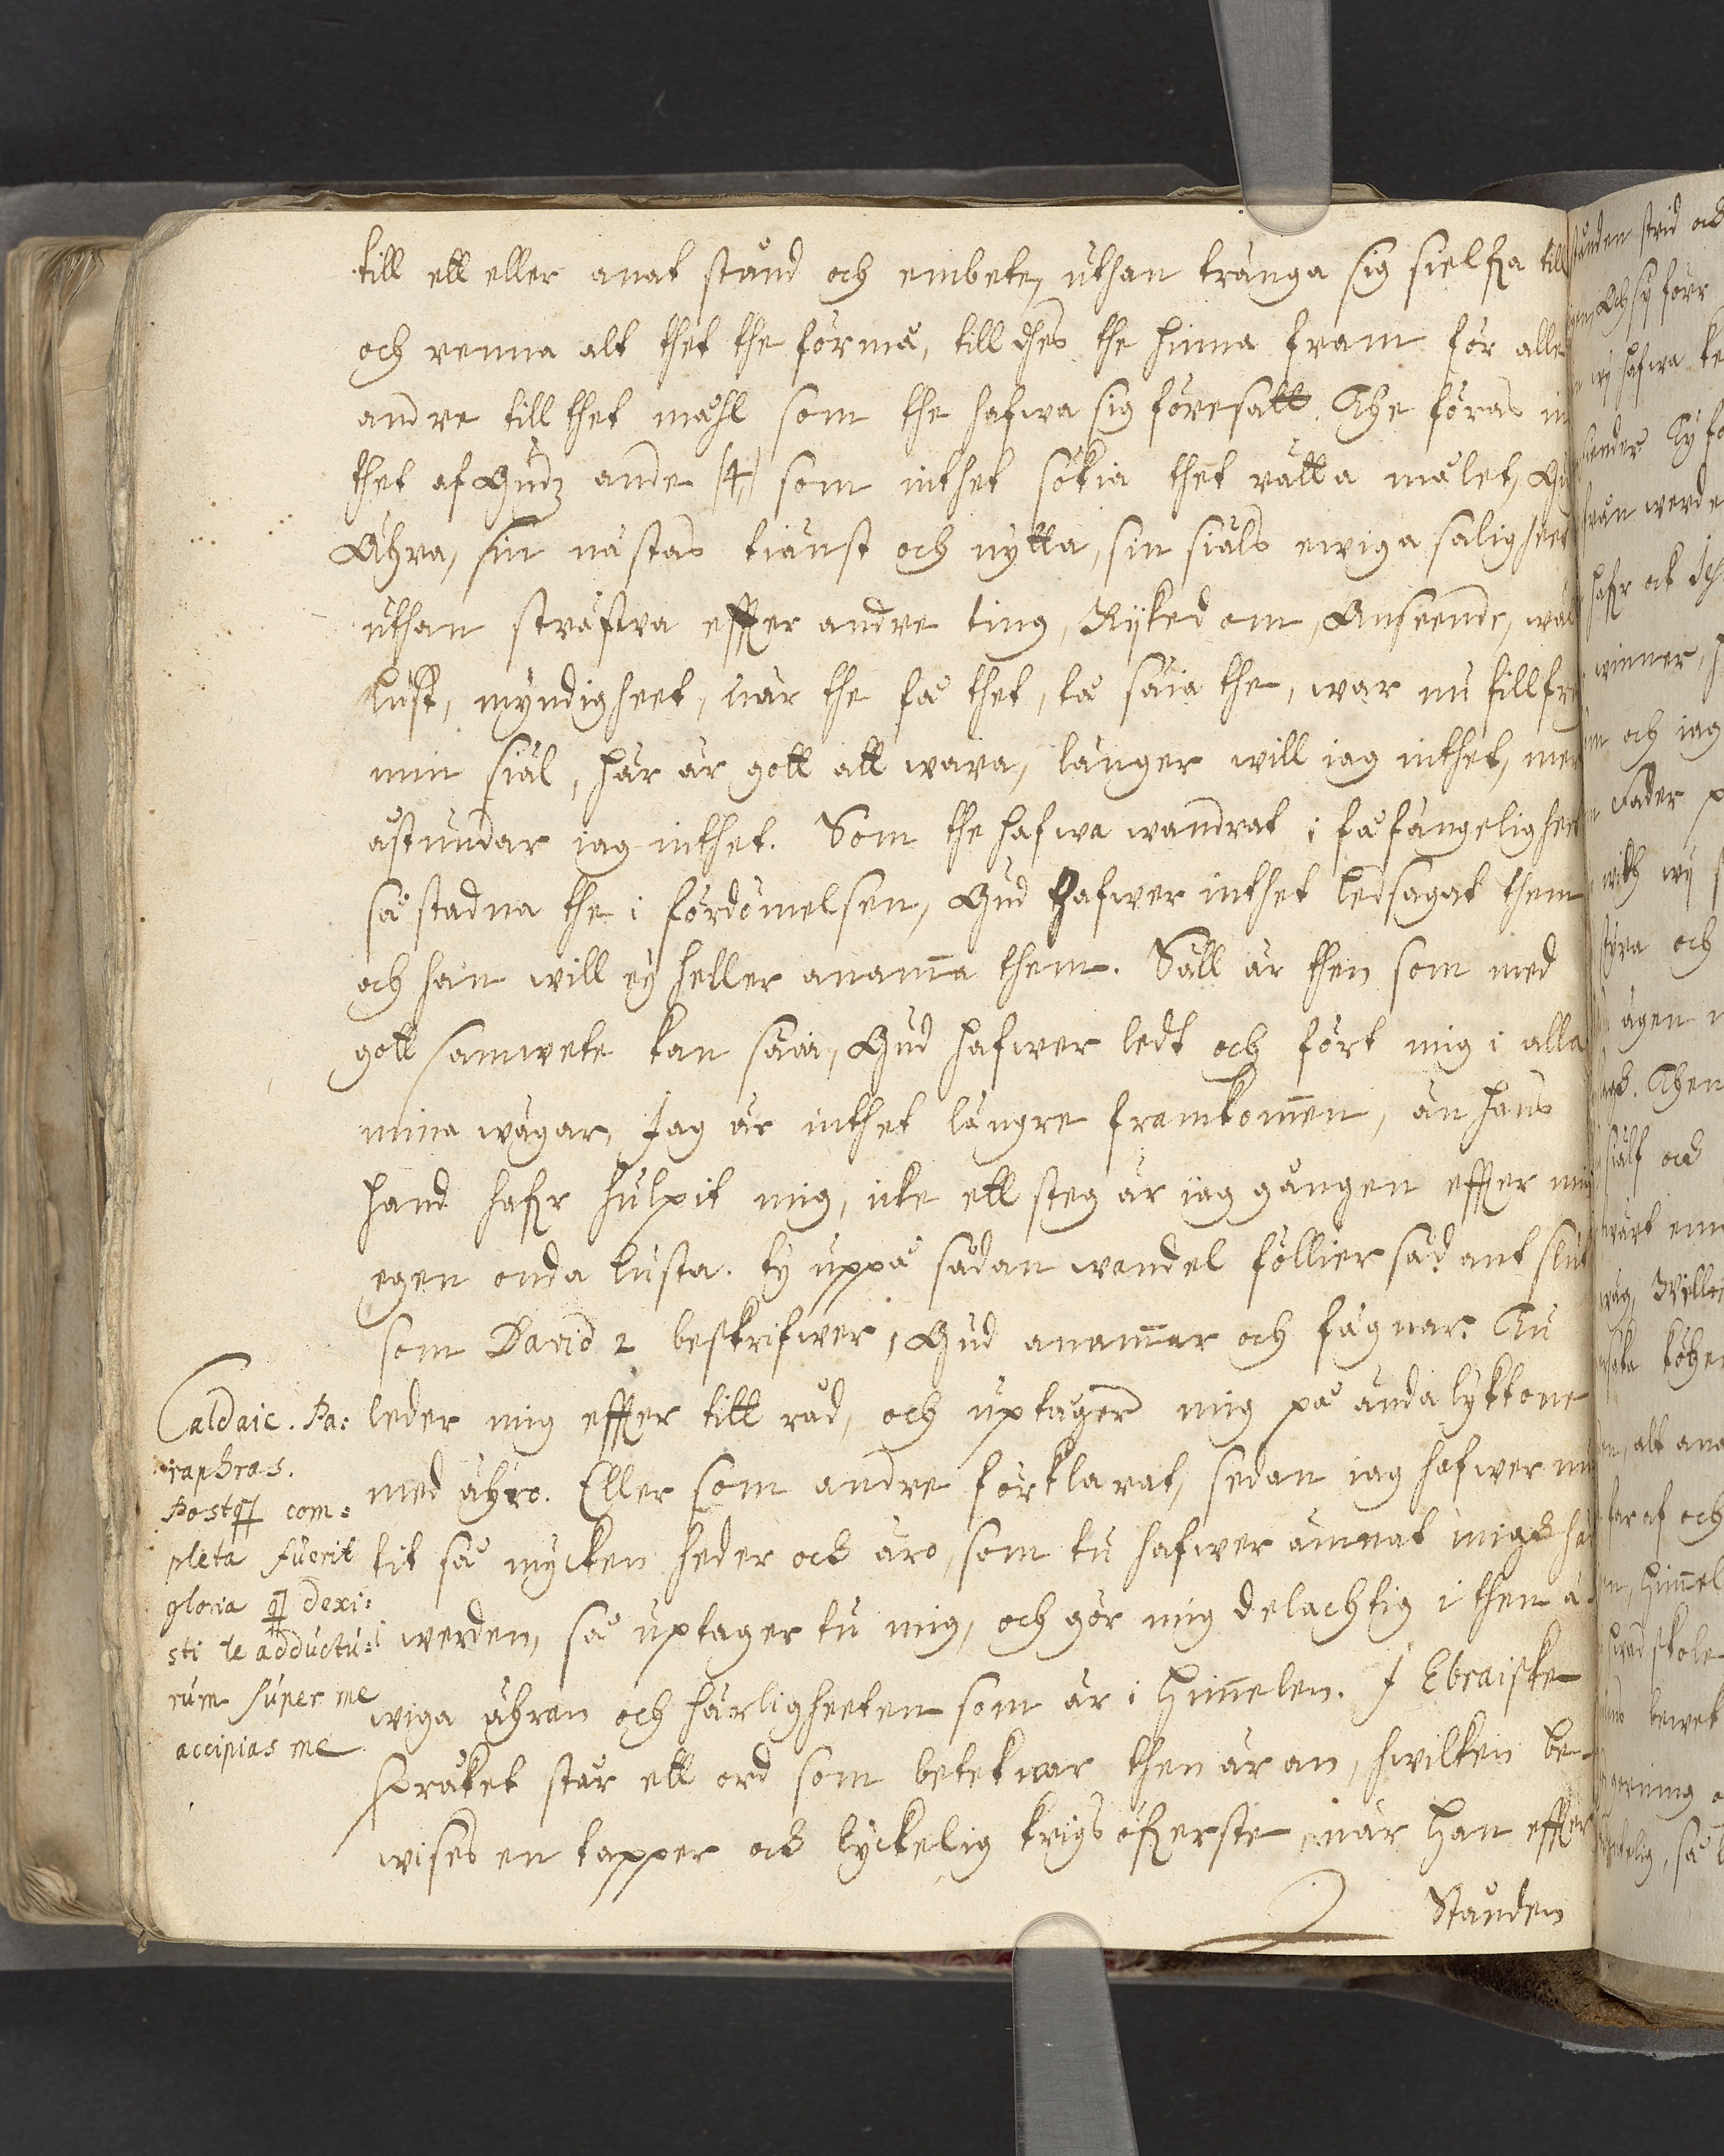 till ett eller anat stånd och embete, uthan tränga sig sielfva till
och renna alt thet the förmå, till thes the hinna fram för alle
andre till thet måhl som the hafwa sig föresatt. The föras in
thet af Gudz ande /4/ som inthet sökia thet rätta målet,
Ähra, sin nästas tiänst och nytta, sin siäls ewiga saligheet
uthan sträfwa effter andre ting, Rijkedom, Anseende,
Lust, myndigheet, när the få thet, tå säia the, war nu tillfre
min siäl, här är gott att wara, länger will iag inthet, mer
åstundar iag inthet. Som the hafwa wandrat i fåfängeligheet
så stadna the i fördömelsen, Gud hafwer inthet ledsagat them
och han will ey heller anam̅a them. Säll är then som med
gott samwete kan säia, Gud hafwer ledt och fört mig i alla
mina wägar, Jag är inthet längre framkom̅en, än hans
hand hafr hulpit mig, icke ett steg är iag gången effter min
egen onda lusta. ty uppå sådan wandel föllier sådant slut
som David 2 beskrifwer, Gud anam̅ar och fägnar. Tu
leder mig effter titt råd, och uptager mig på ändalyktone
med ähro. Eller som andre förklarat, sedan iag hafwer nu
tit så mycken heder och äro, som tu hafwer ämnat mig här
i werden, så uptager tu mig, och gör mig delachtig i then ä
wiga ähran och härligheeten som är i Him̅elen. I Ebraiske
språket står ett ord som beteknar then äran, hwilken be-
wises en tapper och lyckelig krigs öfwerste, när han effter
Stånden
Caldaic. Pa:
raphras.
Postq̃ com:
pleta fuerit
gloria q̃ dixi:
sti te adductu:
rum super me
accipias me